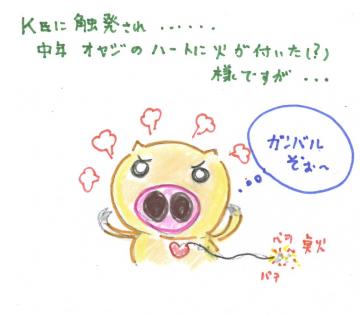 K氏に触発され......
中年オヤジのハートに火が付いた(?)
様ですが...
ガンバル
ぞぉ〜
心の
臭火
パチ